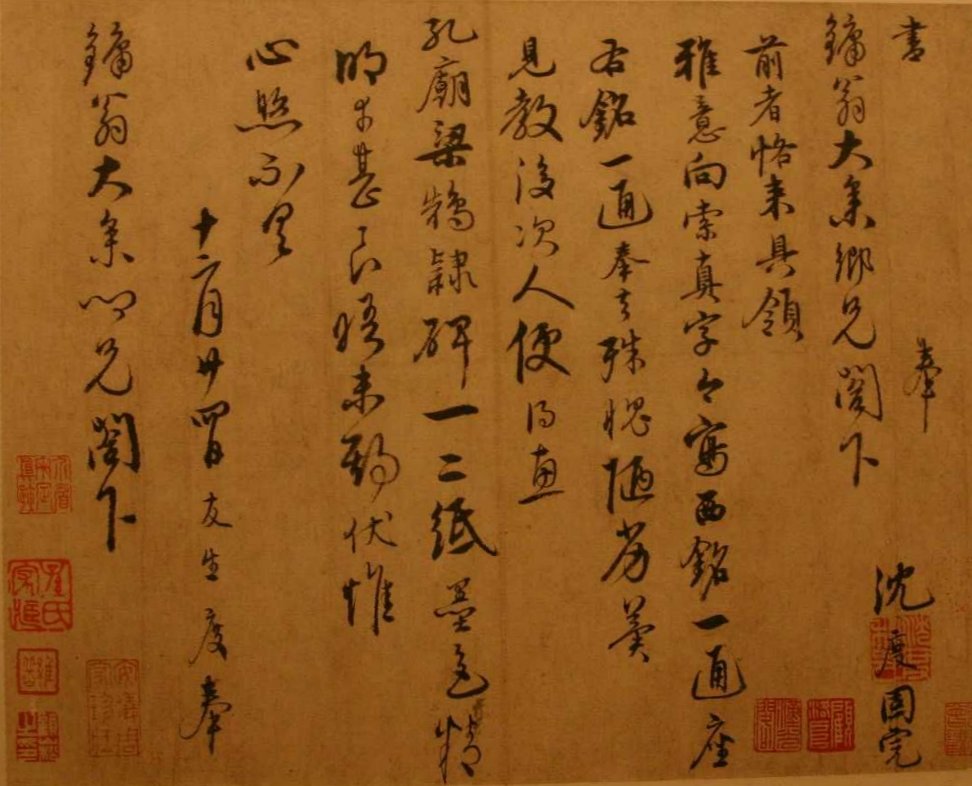 書奉
鏞翁大參鄉兄閣下
沈度固完
前者恪來具領
雅意向索真字今寫西銘一通座
右銘一通奉去殊愧陋劣冀
見教後次人便得惠
孔廟梁鵠隸碑一二紙墨色精
明甚良晤未期伏惟
心照不具
十二月廿四日友生度奉
鏞翁大參鄉兄閣下